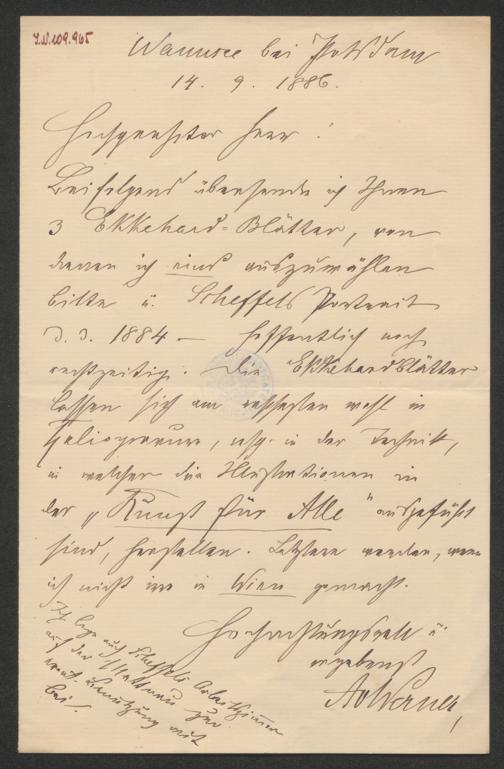 I.N. 109.965
Wannsee bei Potsdam
14. 9. 1886.
Hochgeehrter Herr!
Beifolgend übersende ich Ihnen
3 Ekkehard-Blätter, von
denen ich eins auszuwählen
bitte u. Scheffels Portrait
d. d. 1884 – hoffentlich noch
rechtzeitig. Die Ekkehardblätter
lassen sich am wohl in
Heliogravure, resp. in der Technik,
in welcher die Illustrationen in
der „Kunst für Alle" ausgeführt
sind, herstellen. Letztere werden, wenn
ich nicht irre in Wien gemacht.
Hochachtungsvoll u.
ergebenst
AvWerner,
Ich lege auch Scheffels Arbeitszimmer
auf der Mettnau zur
event. Benutzung mit
bei.